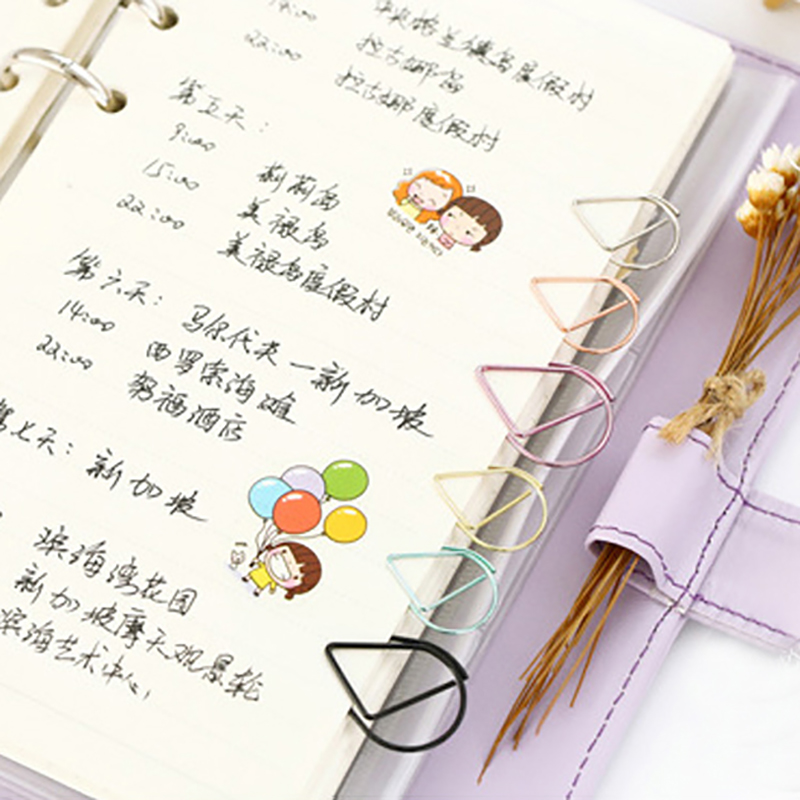 22:00 拉古娜岛
拉古娜度假村
第五天:
9:00 莉莉岛
15:00 美禄岛
22:00 美禄岛度假村
第六天: 马尔代夫—新加坡
14:00 西罗索海滩
22:00 努福酒店
第七天: 新加坡
滨海湾花园
新加坡摩天观景轮
滨海艺术中心